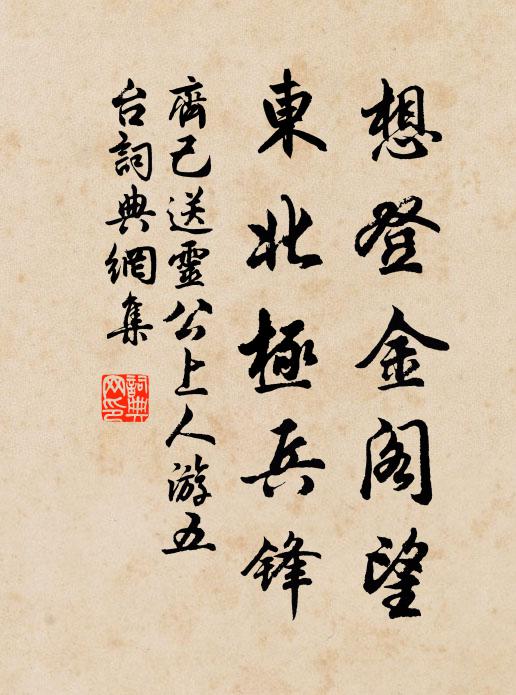 想登金阁望
東北極兵锋
齊己送靈公上人游五
台詞典網集
詞典网印